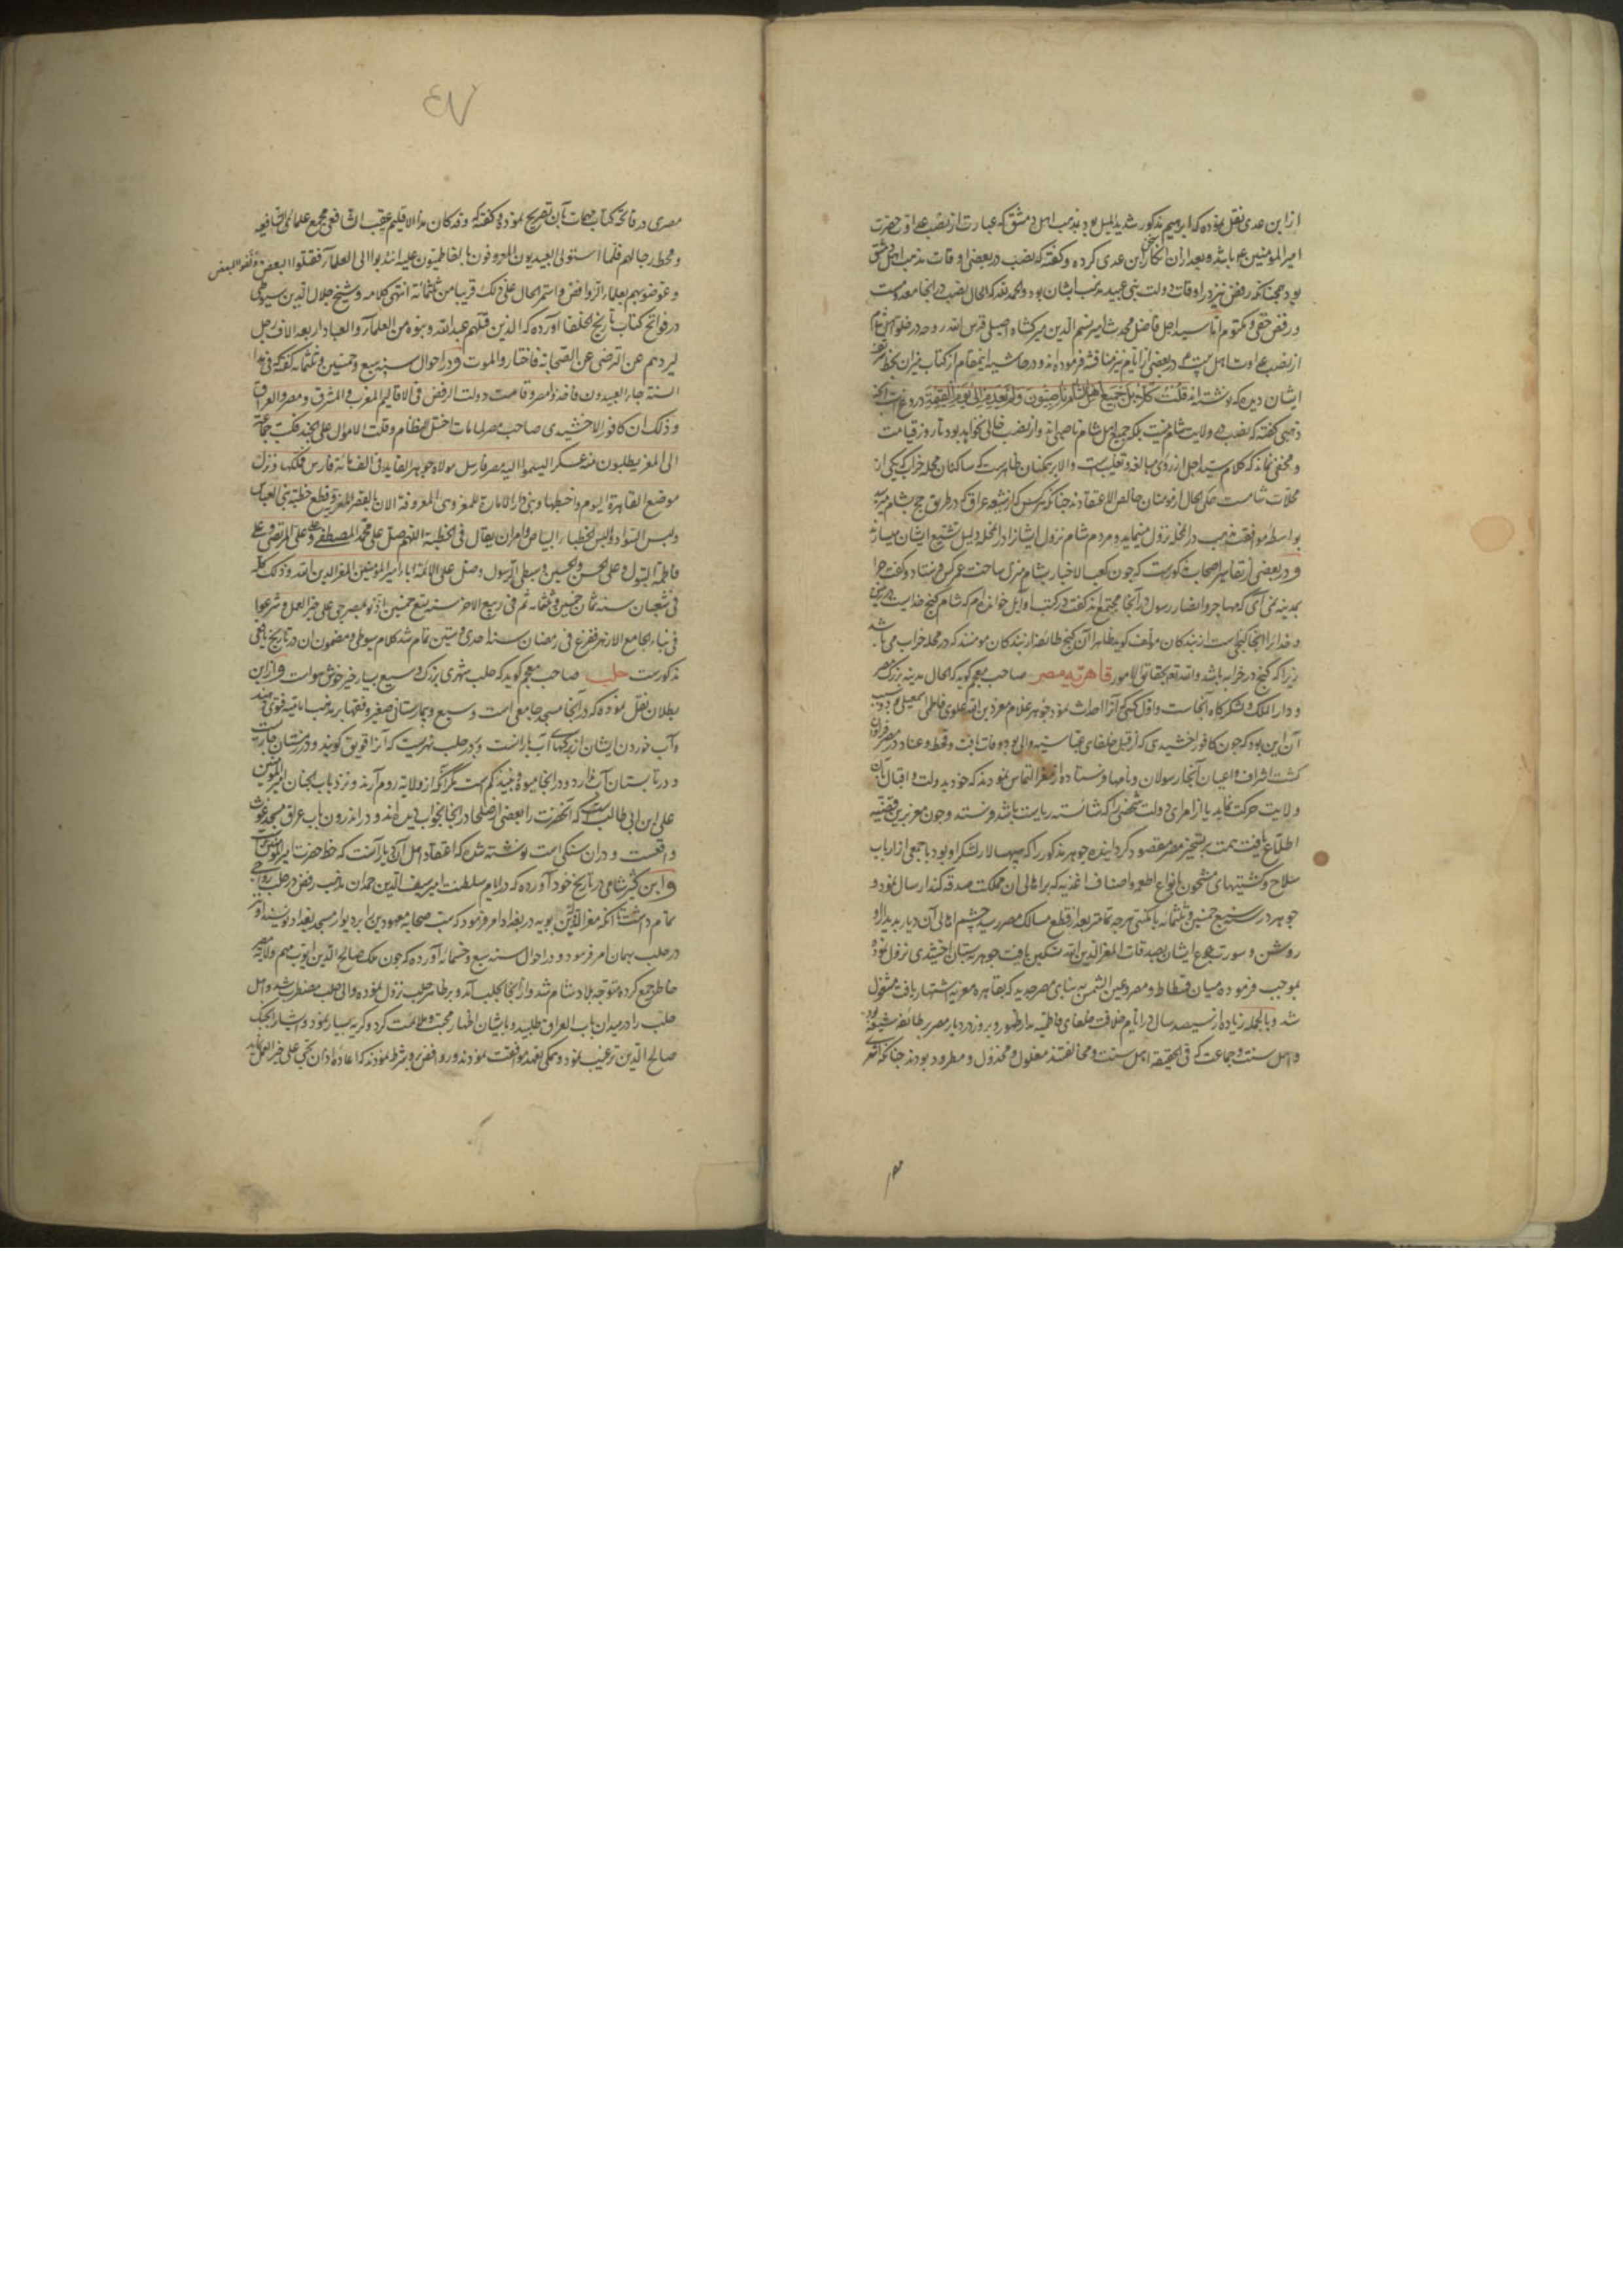 از ابن عدی نقل نموده که ابراهیم مذکور شدید المیل بود بمذهب اهل دمشق که عبارت از نصب عداوت حضرت
امیرالمؤمنین ع باشد و بعد از آن انکار ابن عدی کرده و گفته که نصب در بعضی اوقات مذهب اهل دمشق
بود همچنانکه رفض نیز در اوقات دولت بنی عبید مذهب ایشان بود والحمد لله که الحال نصب در آنجا معدومست
و رفض خفی و مکتوم اما سید اجل فاضل محدث امیر نسیم الدین میرکشاه اصیلی قدس الله روحه در خلو اهل شام
از نصب عداوت اهل بیت ع در بعضی از ایام نیز مناقشه فرموده اند و در حاشیه اینمقام از کتاب میزان بخط
ایشان دیده که نوشته اند قلت کلا بل جمیع اهل الشام ناصبیون ولم یعدم الی یوم القیمة دروغ است آنچه
ذهبی گفته که نصب در ولایت شام نیست بلکه جمیع اهل شام ناصبی اند و از نصب خالی نخواهد بود تا روز قیامت
و مخفی نماند که کلام سید اجل از روی مبالغه و تغلیبست والا بر همگنان ظاهرست که ساکنان محله خراب که یکی از
محلات شامست حتی الحال از مومنان خالص الاعتقادند چنانکه هر کس که از شیعه عراق که در طریق حج بشام میرسد
بواسطه موافقت مذهب در آنمحله نزول مینماید و مردم شام نزول ایشانرا در آنمحله دلیل تشیع ایشان میسازند
و در بعضی از تفاسیر اصحاب مذکورست که چون کعب الاخبار بشام منزل ساخت عمر کس فرستاد و گفت چرا
بمدینه نمی آئی که مهاجر و انصار رسول در آنجا مجتمع اند گفت در کتب اوایل خوانده ام که شام گنج خدایست در زمین
و خدایرا آنجا گنجی است از بندکان مؤلف گوید ظاهرا آن گنج طائفه از بندکان مومنند که در محله خراب می باشند
زیرا که گنج در خرابه باشد والله تعالی بحقایق الامور قاهره مصر صاحب معجم گوید که الحال مدینه بزرگ مصر
و دار الملک و لشکرگاه آنجاست و اول کسی که آنرا احداث نمود جوهر غلام معز لدین الله علوی فاطمی اسمعیلی بود و سبب
آن این بود که چون کافور اخشیدی که از قبل خلفای عباسیه والی بود وفات یافت و قحط و عناد در مصر فراوان
گشت اشراف و اعیان آنجا رسولان و نامها فرستاده از معز التماس نمودند که خود بدولت و اقبال بآن
ولایت حرکت نماید یا از امرای دولت شخصی را که شائسته ریاست باشد فرستد و چون معز برین قضیه
اطلاع یافت همت بر تسخیر مصر مقصود گردانیده جوهر مذکور را که سپهسالار لشکر او بود با جمعی از ارباب
سلاح و کشتیهای مشحون بانواع اطعمه و اصناف اغذیه که بر اهالی آن مملکت صدقه کند ارسال نمود و
جوهر در سنه سبع خمسین و ثلثمائه با مکنتی هر چه تمامتر بعد از قطع مسالک بمصر رسید چشم اهالی آن دیار بدیدار او
روشن و سورت جوع ایشان بصدقات المعز لدین الله تسکین یافت جوهر به بستان اخشیدی نزول نموده
بموجب فرموده میان فسطاط و مصر و عین الشمس به بنای مصر جدید که بقاهره معزیه اشتهار یافت مشغول
شد و بالجمله زیاده از سیصد سال در ایام خلافت خلفای فاطمیه مدار ظهور و بروز در دیار مصر بر طائفه شیعه بود
و اهل سنت و جماعت که فی الحقیقه اهل سنت و مخالفتند مغلول و مخذول و مطرود بودند چنانکه اشعری
مصر
٤٧
مصری در فاتحه کتاب طبقات بآن تصریح نموده و گفته که وقد کان هذا الاقلیم عقب الشافعی مجمع علماء الشافعیه
و محط رحالهم فلما استولی العبیدیون المعروفون بالفاطمیون علیه انتدبوا الی العلماء فقتلوا البعض و نفوا البعض
و عوضوهم بعلماء الروافض و استمر الحال علی ذلک قریبا من ثلثمائة انتهی کلامه و شیخ جلال الدین سیوطی
در فواتح کتاب تاریخ الخلفا آورده که الذین قتلهم عبدالله و بنوه من العلماء و العباد اربعة الاف رجل
لیردهم عن الترضی عن الصحابة فاختاروا الموت و در احوال سنه سبع و خمسین و ثلثمائه گفته که فی هذا
السنة جاء العبیدون فاخذوا مصر و قامت دولت الرفض فی الاقالیم المغرب و المشرق و مصر و العراق
و ذلک ان کافور الاخشیدی صاحب مصر لما مات اختل النظام و قلت الاموال علی الجند فکتب جماعة
الی المعز یطلبون منه عسکرا لیسلموا الیه مصر فارسل مولاه جوهر القاید فی الف مائة فارس فملکها و نزل
موضع القاهرة الیوم و اختطها و بنی دار الامارة للمعز و هی المعروفة الان بالقصر المعزیه و قطع خطبة بنی العباس
و لبس السواد و البس الخطباء البیاض و امر ان یقال فی الخطبة اللهم صل علی محمد المصطفی و علی علی المرتضی و علی
فاطمة البتول و علی الحسن و الحسین و سبطی الرسول و صل علی الائمة اباء امیر المؤمنین المعز لدین الله و ذلک کله
فی شعبان سنة ثمان خمسین و ثلثمائه ثم فی ربیع الاخر سنه تسع خمسین اذنوا بمصر بحی علی خیر العمل و شرعوا
فی بناء الجامع الازهر ففرغ فی رمضان سنة احدی و ستین تمام شد کلام سیوطی و مضمون آن در تاریخ یافعی
مذکورست حلب صاحب معجم گوید که حلب شهری بزرگ و وسیع بسیار خیر خوش هواست و از ابن
بطلان نقل نموده که در آنجا مسجد جامعی است وسیع و بیمارستانی صغیر و فقها بر مذهب امامیه فتوی دهند
و آب خوردن ایشان از برکهای آب بارانست و بدر حلب نهریست که آنرا قویق گویند و در زمستان جاریست
و در تابستان آب ندارد و در آنجا میوه و نبیذ کم است مگر آنکه از ولایه روم آرند و نزد باب الجنان امیرالمؤمنین
علی ابن ابی طالب است که آنحضرت را بعضی از صلحا در آنجا بخواب دیده اند و در اندرون باب عراق مسجد غوث
واقعست و در آن سنگی است نوشته شده که اعتقاد اهل آن دیار آنست که خط حضرت امیرالمؤمنین است
و ابن کثیر شامی در تاریخ خود آورده که در ایام سلطنت امیر سیف الدین حمدان مذهب رفض در حلب رواجی
تمام داشت تا آنکه معز الدوله بن بویه در بغداد امر فرمود که سب صحابه معهودین را بر دیوار مسجد بغداد نویسند او نیز
در حلب بهمان امر فرمود و در احوال سنه سبع و خمسمائه آورده که چون ملک صالح الدین ایوب مهم ولایه مصر
خاطر جمع کرده متوجه بلاد شام شد و از آنجا بحلب آمد و بر ظاهر حلب نزول نموده والی حلب مضطرب شد و اهل
حلب را در میدان باب العراق طلبید و با ایشان اظهار محبت و ملائمت کرد و گریه بسیار نمود و ایشانرا بجنگ
صالح الدین ترغیب نمود و همگی بعهد موافقت نمودند و روافض برو شرط نمودند که اعاده اذان بحی علی خیر العمل نماید